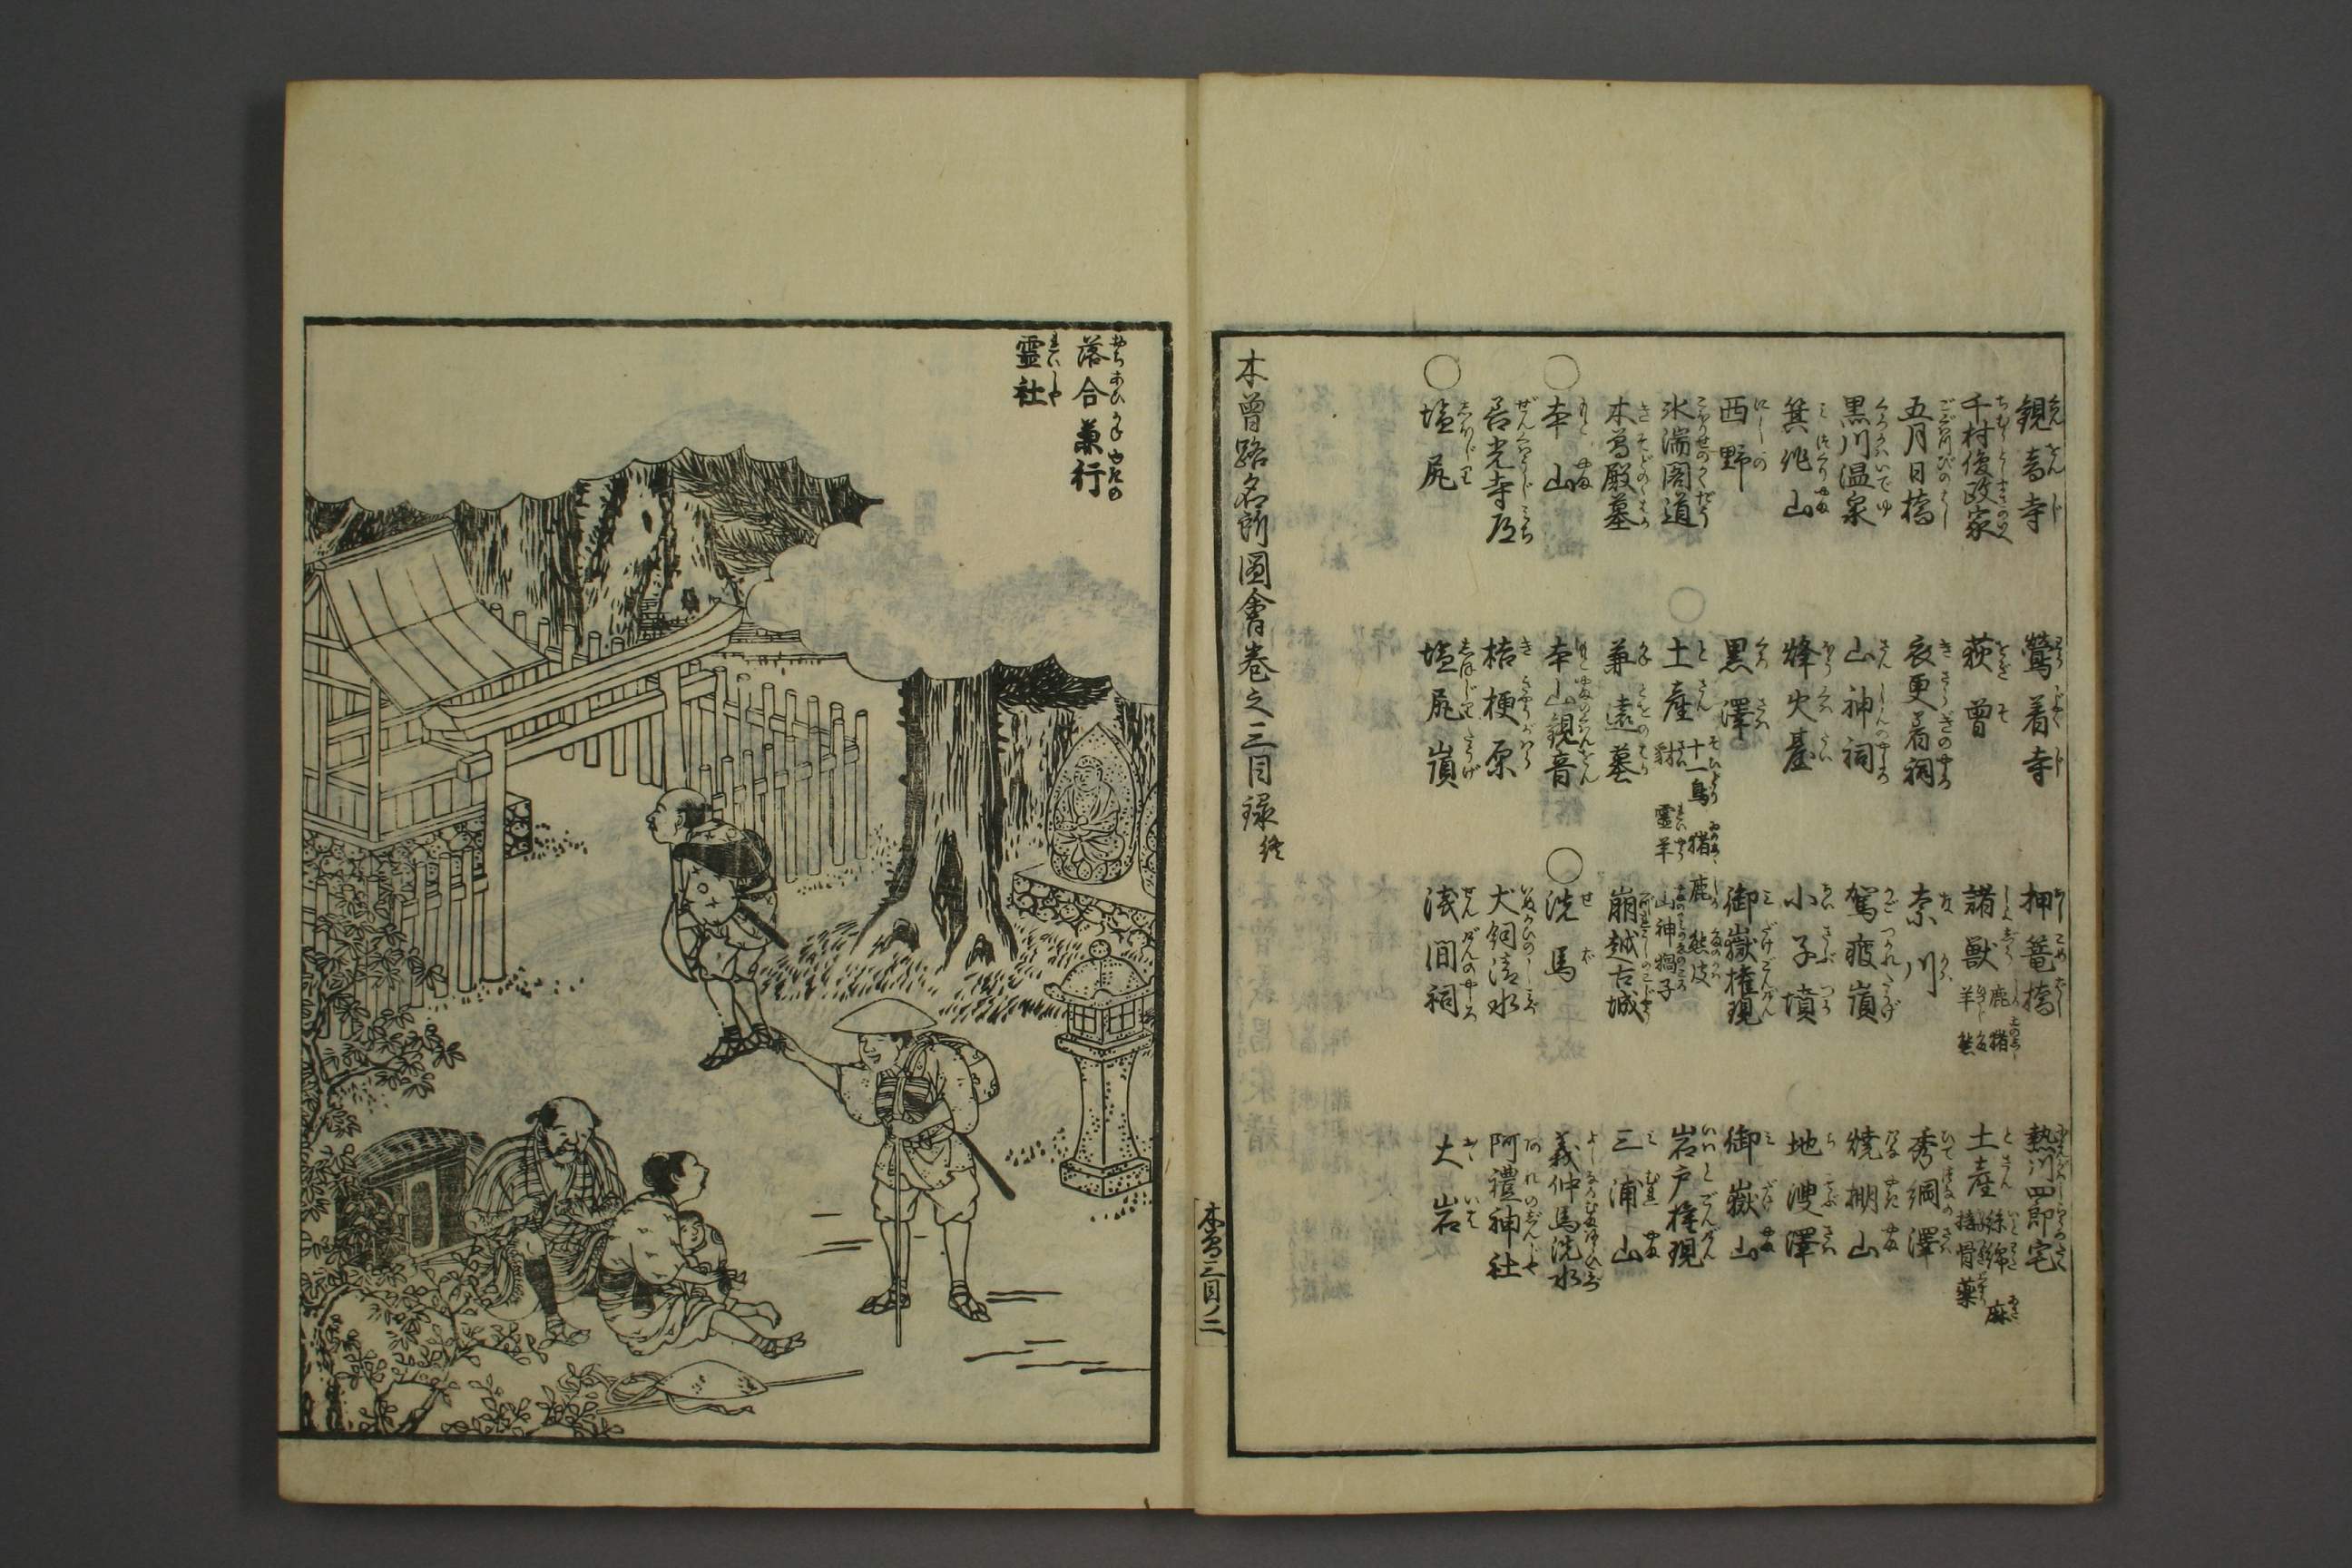 観音寺
鶯着寺
押篭橋
熱川四郎宅
千村俊政家
荻曽
諸獣 鹿 猪 羊 熊
土産 絲綿 麻 接骨薬
五月日橋
衣更着祠
奈川
秀綱澤
黒川温泉
山神祠
駕疲嶺
焼棚山
箕作山
烽火臺
小子墳
地溲澤
西野
黒澤
御嶽権現
御嶽山
氷湍閣道
○土産 十一鳥 猪 鹿 熊皮 豺 霊羊 山神犒子
岩戸権現
木曽殿墓
兼遠墓
崩越古城
三浦山
○本山
本山観音
○洗馬
義仲馬洗水
善光寺道
桔梗原
犬飼清水
阿禮神社
○塩尻
塩尻嶺
浅間祠
大岩
木曽路名所圖會巻之三目録終
木曽三目ノ二
落合兼行
霊社